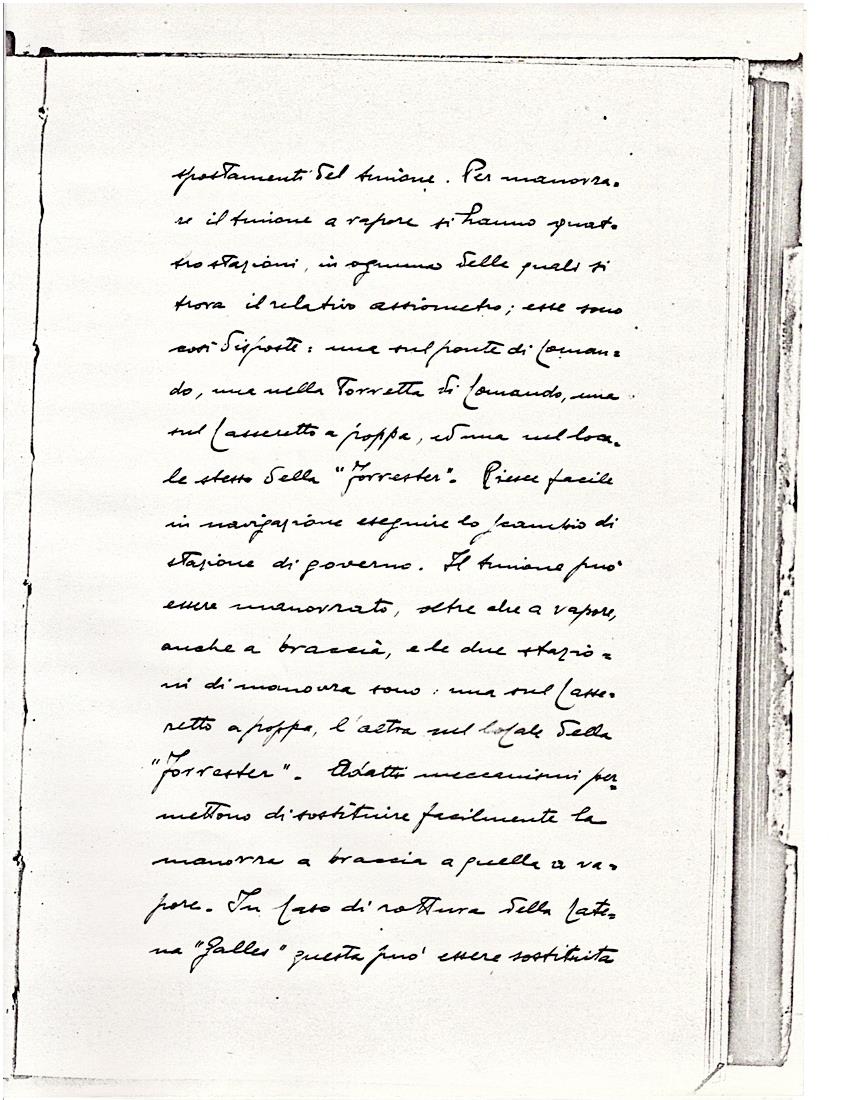 spostamenti del timone. Per manovra=
re il timone a vapore si hanno quat=
tro stazioni, in ognuna delle quali si
trova il relativo assiometro; esse sono
così disposte: una sul ponte di Coman=
do, una nella Torretta di Comando, una
sul Casseretto a poppa, ed una nel loca=
le stesso della "Forrester". Riesce facile
in navigazione eseguire lo scambio di
stazione di governo. Il timone può
essere manovrato, oltre che a vapore,
anche a braccia, e le due stazio=
ni di manovra sono: una sul Casse=
retto a poppa, l'altra nel locale della
"Forrester". Adatti meccanismi per=
mettono di sostituire facilmente la
manovra a braccia a quella a va=
pore. In Caso di rottura della Cate=
na "Galles" questa può essere sostituita